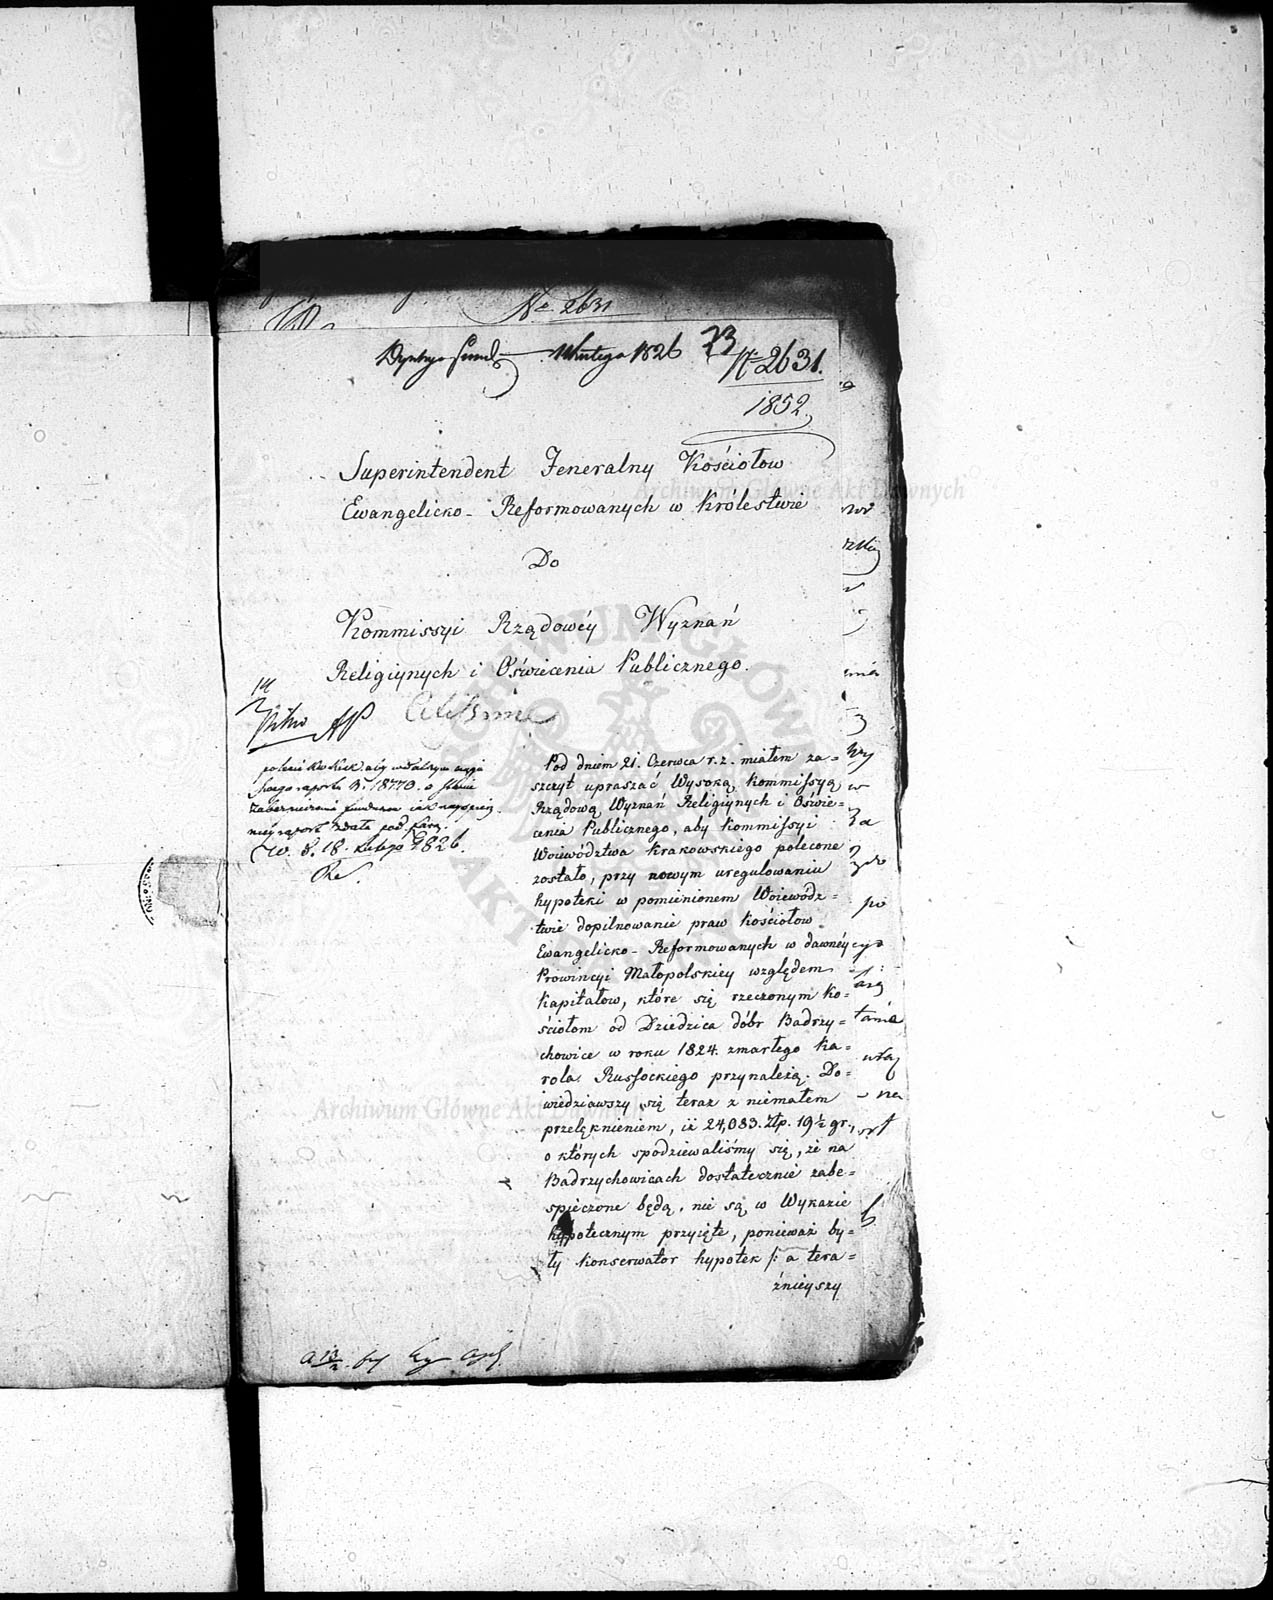 No 2631
Lutego 1826
73
No 2631.
1852.
Superintendent Jeneralny Kościołow
Ewangelicko-Reformowanych w Królestwie
Do
Kommissyi Rządowéy Wyznań
Religiynych i Oświecenia Publicznego.
Pod dniem 21. Czerwca r. z. miałem za-
szczyt upraszać Wysoką Kommissyą
Rządową Wyznań Religiynych i Oświe-
cenia Publicznego, aby Kommissyi
Woiewództwa Krakowskiego polecone
zostało, przy nowym uregulowaniu
hypoteki w pomienionem Woiewódz-
twie dopilnowanie praw Kościołow
Ewangelicko-Reformowanych w dawnéy
Prowincyi Małopolskiey względem
Kapitałow, które się rzeczonym Ko-
ściołom od Dziedzica dóbr Badrzy-
chowice w roku 1824. zmarłego Ka-
rola Russockiego przynależą. Do-
wiedziawszy się teraz z niemałem
przelęknieniem, iż 24,083. Złp. 19½ gr.,
o których spodziewaliśmy się, że na
Badrzychowicach dostatecznie zabe-
spieczone będą, nie są w Wykazie
hypotecznym przyięte, ponieważ by-
ły Konserwator hypotek /: a tera-
źnieyszy
18770. o stanie
W. d. 18. Lutego 1826.
Archiwum Główne Akt Dawnych
Archiwum Główne Akt Dawnych